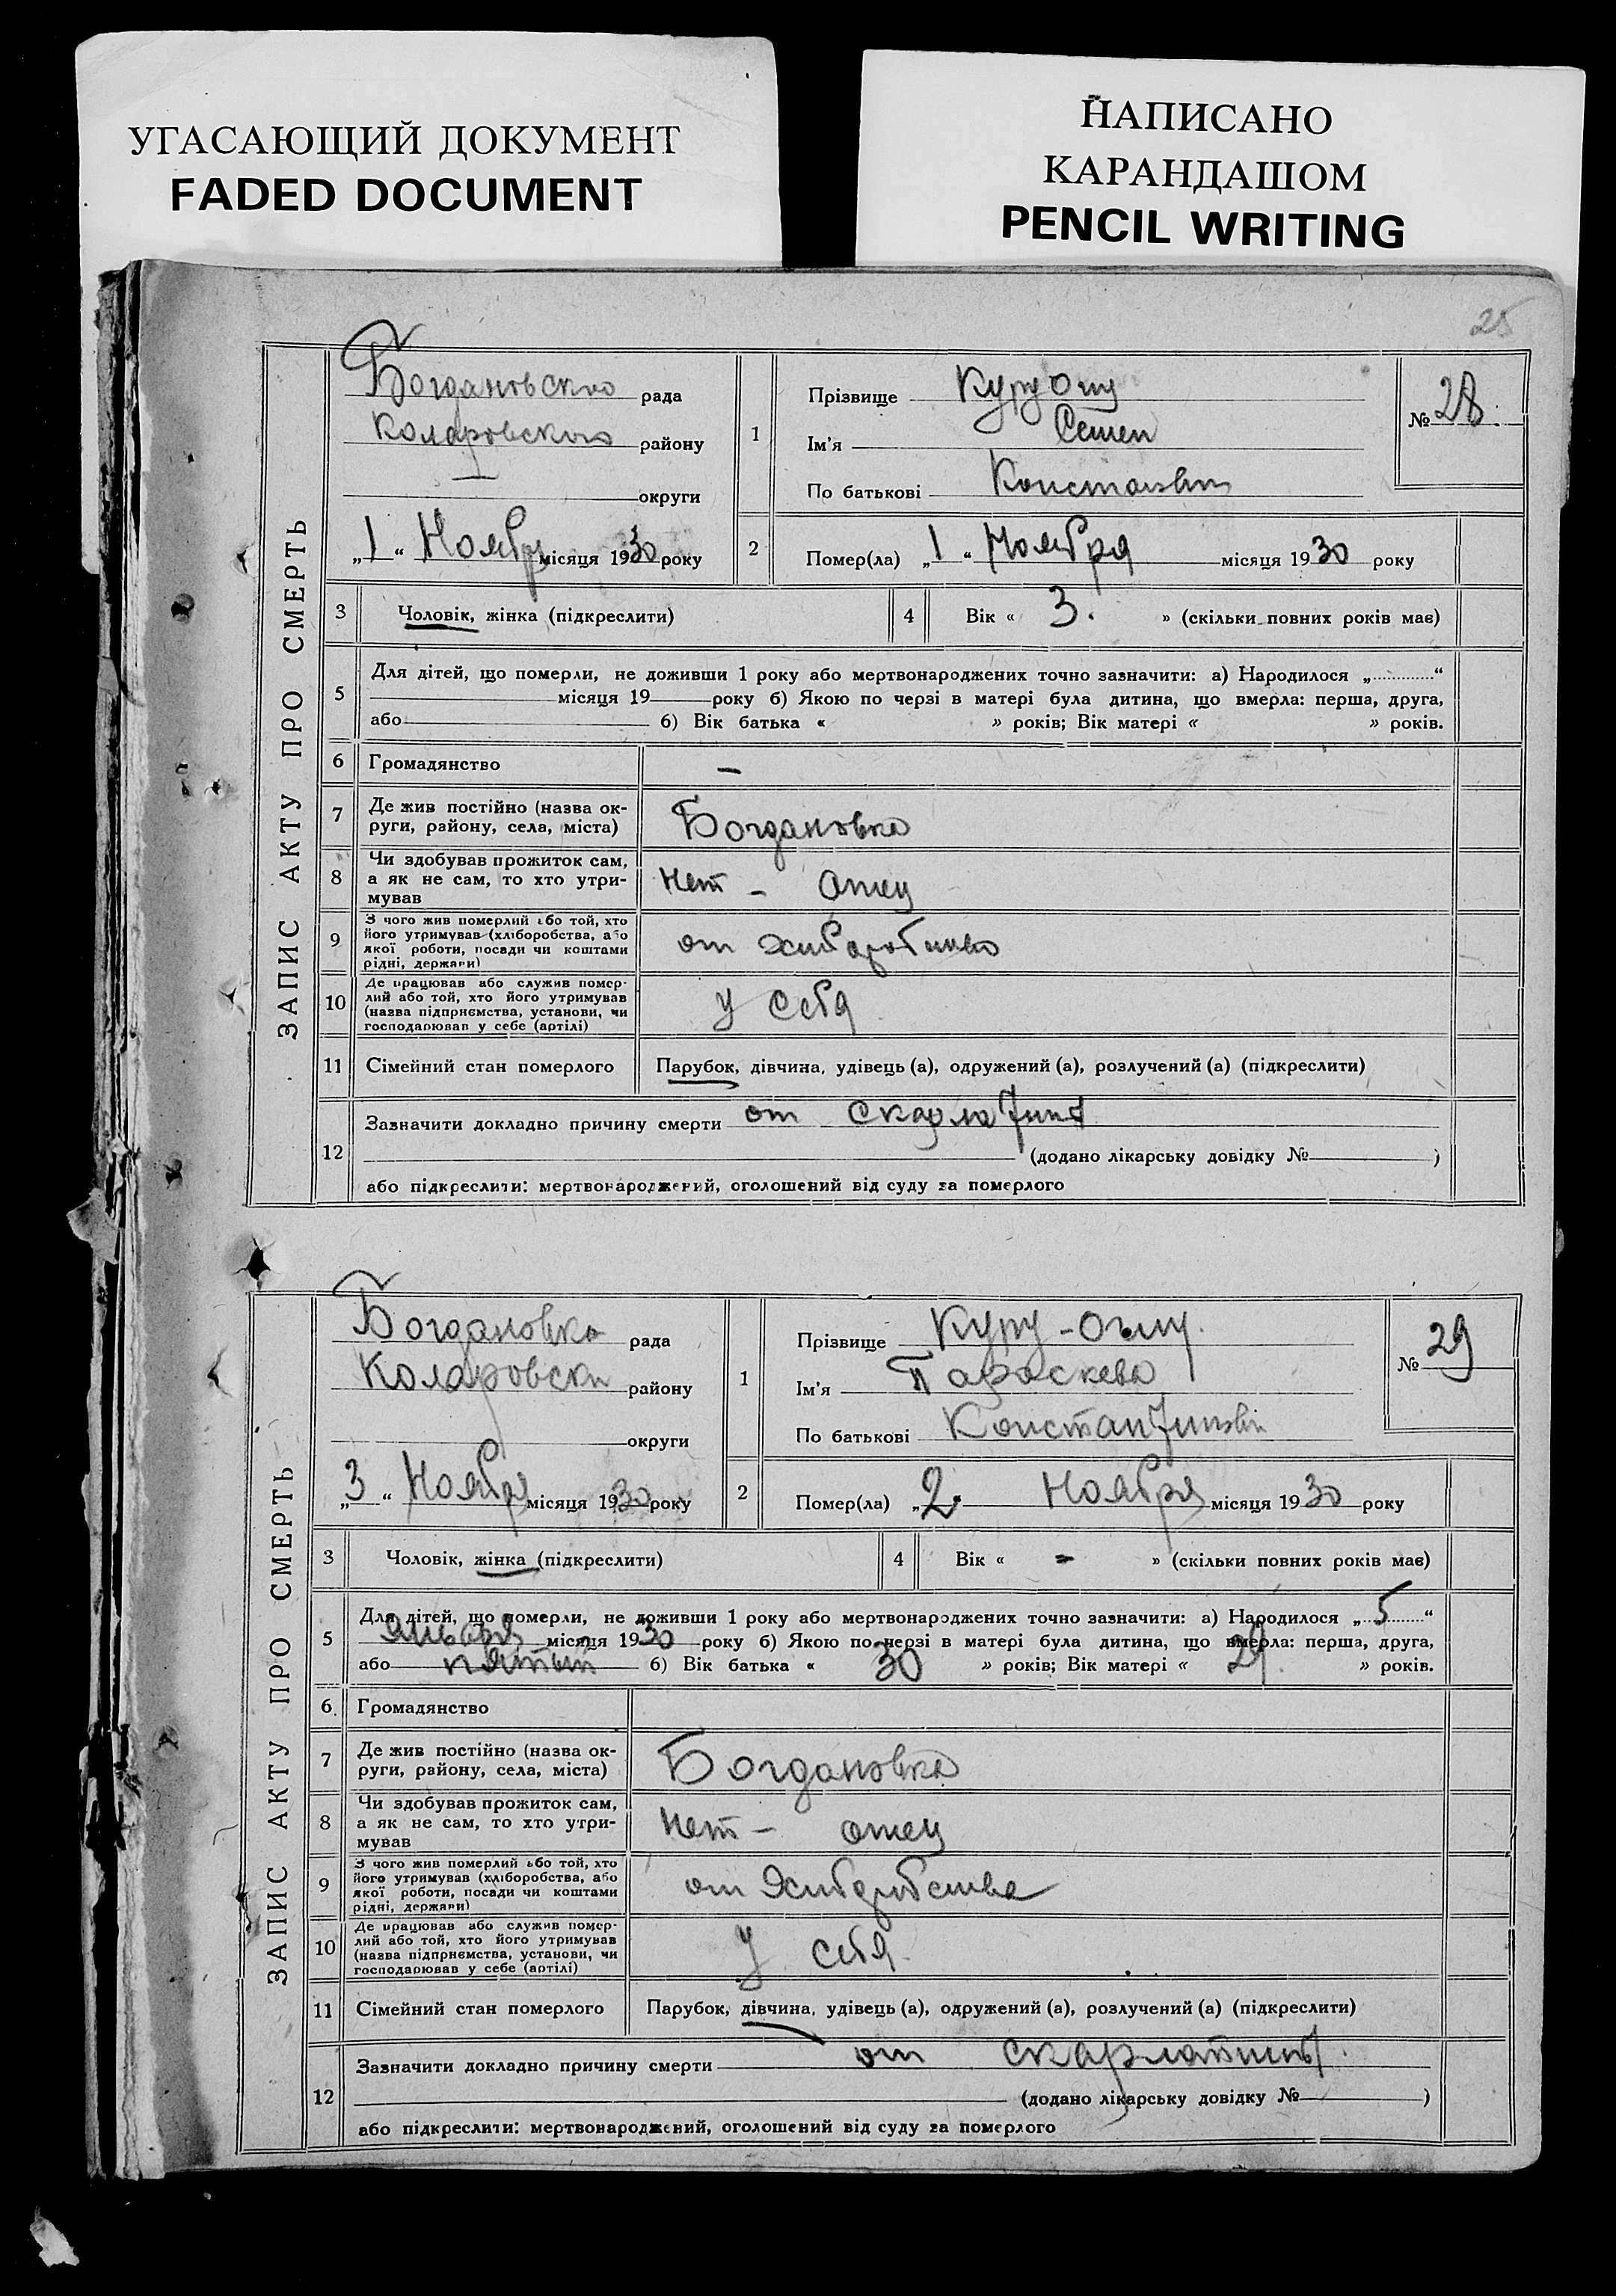 УГАСАЮЩИЙ ДОКУМЕНТ
FADED DOCUMENT
НАПИСАНО
КАРАНДАШОМ
PENCIL WRITING
25
ЗАПИС АКТУ ПРО СМЕРТЬ
Богдановского рада
Коларовского района району
— округи
„1“ Ноября місяця 1930 року
1
Прізвище Куру Ошу
Ім'я Семен
По батькові Константин
№ 28.
2 Помер(ла) „1“ Ноября місяця 1930 року
3 Чоловік, жінка (підкреслити)
4 Вік « 3. » (скільки повних років має)
5 Для дітей, що померли, не доживши 1 року або мертвонароджених точно зазначити: а) Народилося „ “
місяця 19 року б) Якою по черзі в матері була дитина, що вмерла: перша, друга,
або 6) Вік батька « » років; Вік матері « » років.
6 Громадянство —
7 Де жив постійно (назва ок-
руги, району, села, міста) Богдановка
8 Чи здобував прожиток сам,
а як не сам, то хто утри-
мував нет - отец
9 З чого жив померлий або той, хто
його утримував (хліборобства, або
якої роботи, посади чи коштами
рідні, держави) от
10 Де працював або служив помер-
лий або той, хто його утримував
(назва підприємства, установи, чи
господарював у себе (артілі) у себя
11 Сімейний стан померлого Парубок, дівчина, удівець (а), одружений (а), розлучений (а) (підкреслити)
12 Зазначити докладно причину смерти от скарлатины
(додано лікарську довідку № )
або підкреслити: мертвонароджений, оголошений від суду за померлого
ЗАПИС АКТУ ПРО СМЕРТЬ
Богдановка рада
Коларовски району
округи
„3“ Ноября місяця 1930 року
1
Прізвище Куру-Ошлу.
Ім'я Параскева
По батькові Константинов
№ 29
2 Помер(ла) „2. Ноября місяця 1930 року
3 Чоловік, жінка (підкреслити)
4 Вік « - » (скільки повних років має)
5 Для дітей, що померли, не доживши 1 року або мертвонароджених точно зазначити: а) Народилося „5“
Января місяця 1930 року б) Якою по черзі в матері була дитина, що вмерла: перша, друга,
або пятый 6) Вік батька « 30 » років; Вік матері « 29. » років.
6. Громадянство
7 Де жив постійно (назва ок-
руги, району, села, міста) Богдановка
8 Чи здобував прожиток сам,
а як не сам, то хто утри-
мував нет - отец
9 З чого жив померлий або той, хто
його утримував (хліборобства, або
якої роботи, посади чи коштами
рідні, держави) от
10 Де працював або служив помер-
лий або той, хто його утримував
(назва підприємства, установи, чи
господарював у себе (артілі) у себя.
11 Сімейний стан померлого Парубок, дівчина, удівець (а), одружений (а), розлучений (а) (підкреслити)
12 Зазначити докладно причину смерти от скарлатины.
(додано лікарську довідку № )
або підкреслити: мертвонароджений, оголошений від суду за померлого